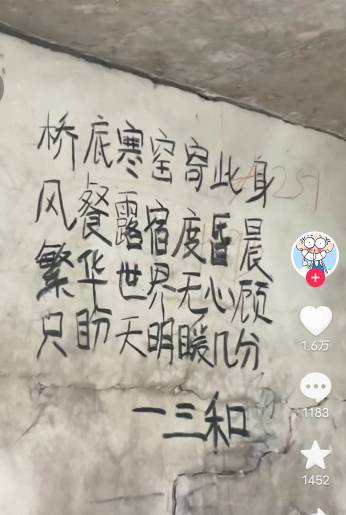 桥底寒窑寄此身
风餐露宿度昏晨
繁华世界无心顾
只盼天明暖几分
一三和
1.6万
1183
1452